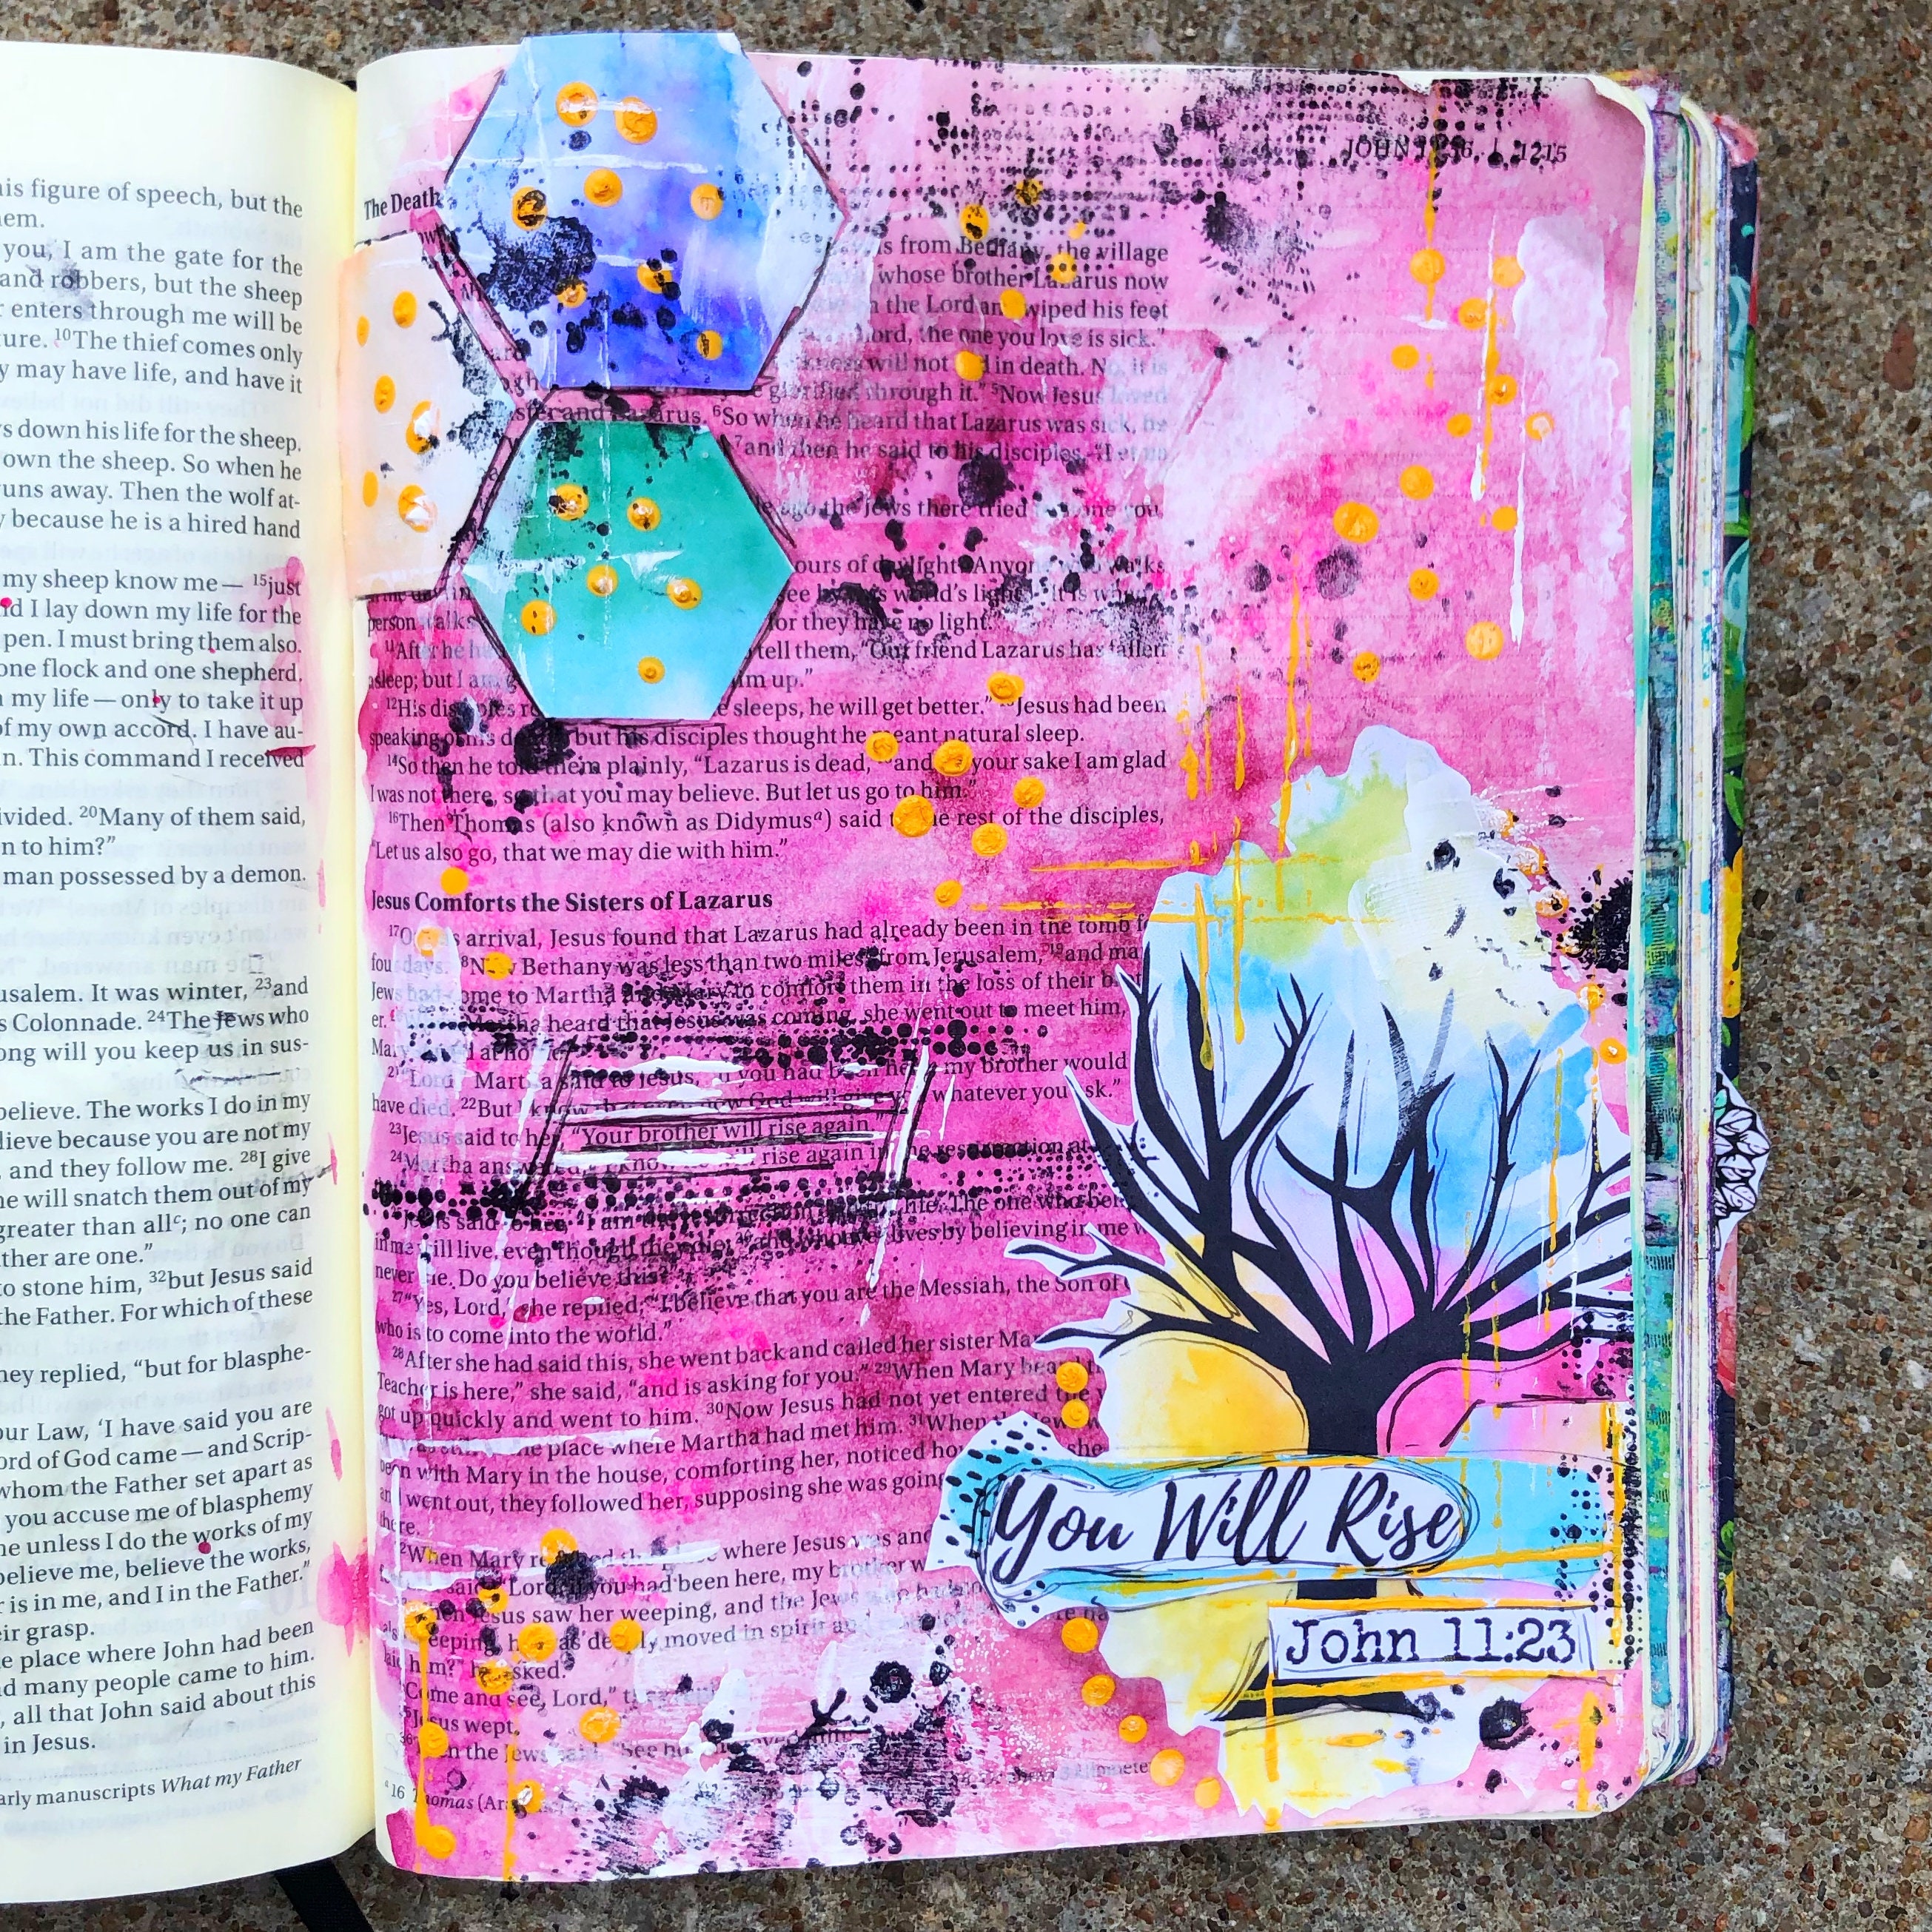 is figure of speech, but the
em.
you, I am the gate for the
and robbers, but the sheep
enters through me will be
ture. 10The thief comes only
may have life, and have it
s down his life for the sheep.
own the sheep. So when he
runs away. Then the wolf at-
because he is a hired hand
my sheep know me— 15just
d I lay down my life for the
pen. I must bring them also.
one flock and one shepherd.
my life—only to take it up
of my own accord. I have au-
n. This command I received
ivided. 20Many of them said,
n to him?”
man possessed by a demon.
usalem. It was winter, 23and
s Colonnade. 24The Jews who
ong will you keep us in sus-
believe. The works I do in my
lieve because you are not my
, and they follow me. 28I give
ne will snatch them out of my
greater than allc; no one can
ther are one.”
to stone him, 32but Jesus said
the Father. For which of these
hey replied, “but for blasphe-
our Law, ‘I have said you are
ord of God came—and Scrip-
whom the Father set apart as
you accuse me of blasphemy
ne unless I do the works of my
believe me, believe the works,
r is in me, and I in the Father.”
eir grasp.
e place where John had been
d many people came to him.
, all that John said about this
in Jesus.
arly manuscripts What my Father
1215
The Death
is from Bethany, the village
whose brother Lazarus now
the Lord and wiped his feet
Lord, the one you love is sick.”
will not end in death. No, it is
glorified through it.” 5Now Jesus loved
sister and Lazarus. 6So when he heard that Lazarus was sick, he
7and then he said to his disciples, “Let us
ago the Jews there tried to stone you,
ours of daylight? Anyone who walks
see by this world’s light. It is when
person walks for they have no light.”
11After he tell them, “Our friend Lazarus has fallen
asleep; but I am up.”
12His disciples sleeps, he will get better.” Jesus had been
speaking of his death, but his disciples thought he meant natural sleep.
14So then he told them plainly, “Lazarus is dead, and your sake I am glad
I was not there, so that you may believe. But let us go to him.”
16Then Thomas (also known as Didymusa) said to the rest of the disciples,
“Let us also go, that we may die with him.”
Jesus Comforts the Sisters of Lazarus
17On his arrival, Jesus found that Lazarus had already been in the tomb f
four days. 18Now Bethany was less than two miles from Jerusalem, 19and ma
Jews had come to Martha and Mary to comfort them in the loss of their b
er. Martha heard that Jesus was coming, she went out to meet him,
Mary
21“Lord,” Martha said to Jesus, “if you had been here, my brother would
have died. 22But I know that even now God will give you whatever you ask.”
23Jesus said to her, “Your brother will rise again.”
24Martha answered, “I know he will rise again in the resurrection at
Jesus said to her, “I am the resurrection The one who bel
in me will live, even though they die; 26and whoever lives by believing in me w
never die. Do you believe this?”
27“Yes, Lord,” she replied, “I believe that you are the Messiah, the Son of
who is to come into the world.”
28After she had said this, she went back and called her sister Ma
Teacher is here,” she said, “and is asking for you.” 29When Mary heard
got up quickly and went to him. 30Now Jesus had not yet entered the v
the place where Martha had met him. 31When the Jews
been with Mary in the house, comforting her, noticed how she
and went out, they followed her, supposing she was going
there.
32When Mary reached the place where Jesus was and
said, “Lord, if you had been here, my brother w
When Jesus saw her weeping, and the Jews
weeping, he was deeply moved in spirit
him?” he asked.
“Come and see, Lord,”
Jesus wept.
36Then the Jews said, “See how
a 16 Thomas (Ar
You Will Rise
John 11:23